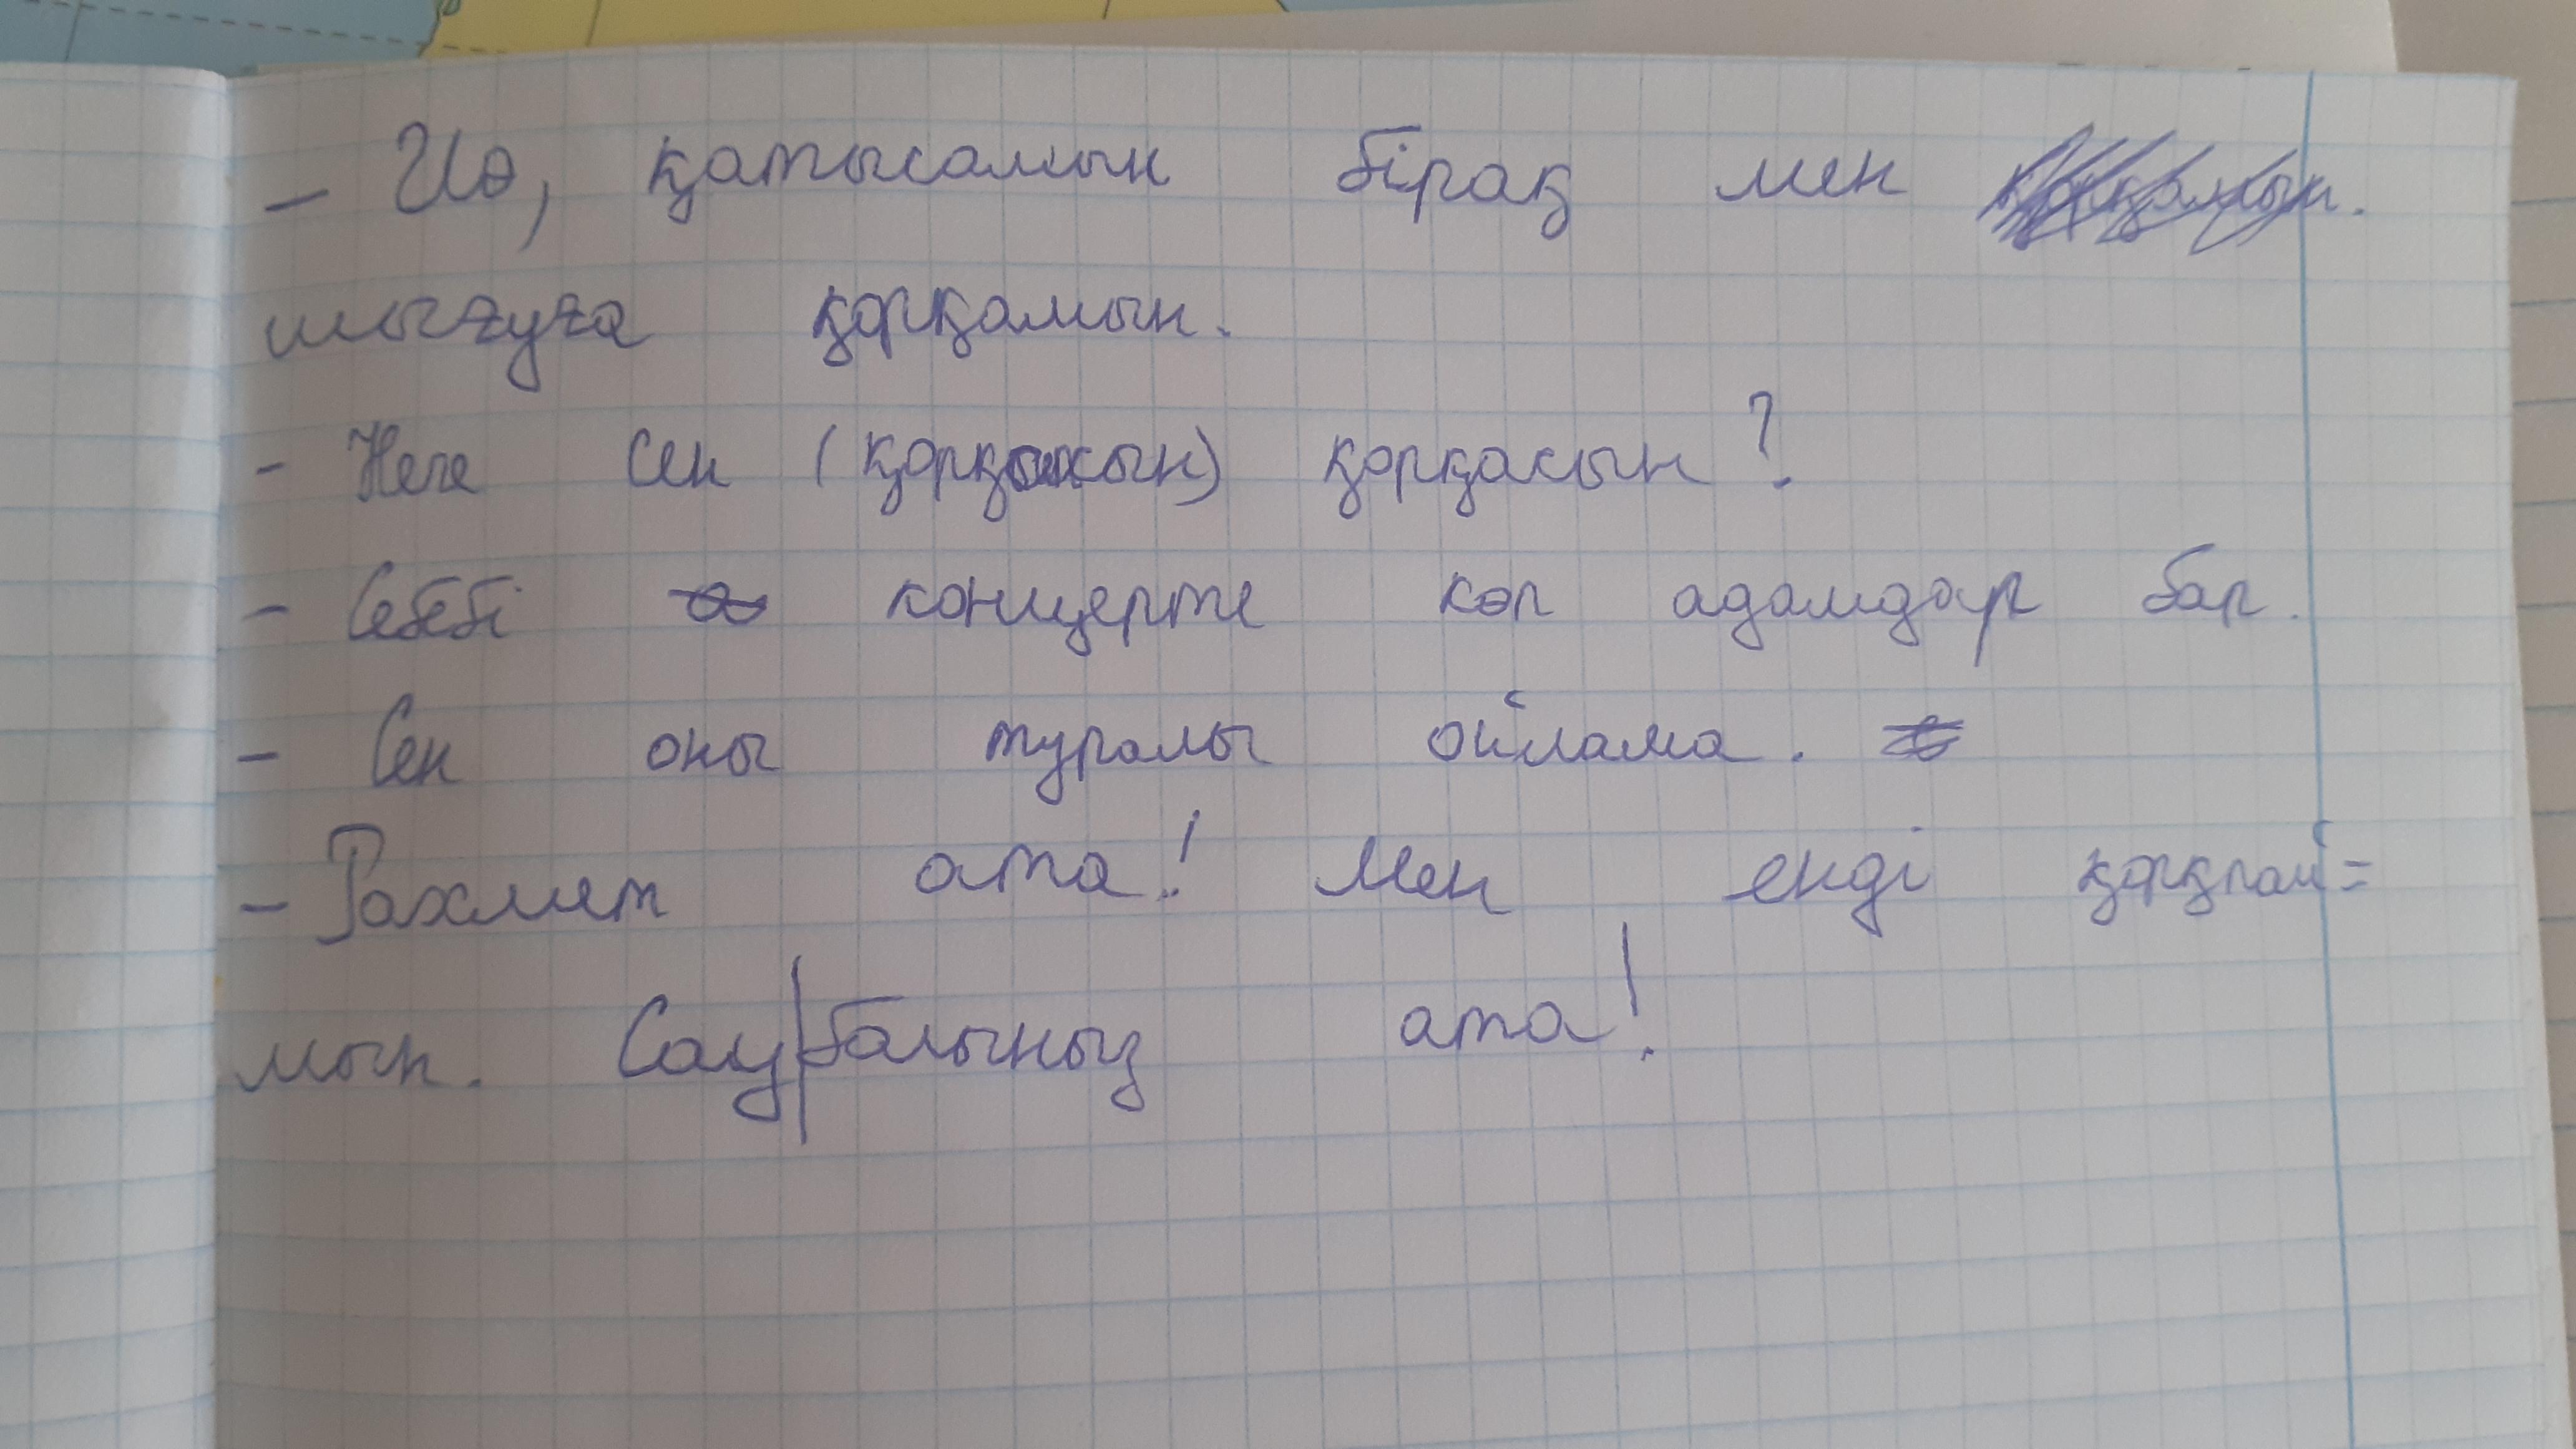 - Иә, қатысамын бірақ мен
шығуға қорқамын.
- Неге сен (қорқасын) қорқасын?
- Себебі концерте көп адамдар бар.
- Сен оны туралы ойлама.
- Рахмет ата! Мен енді қорқпай=
мын. Сау|балыныз ата!